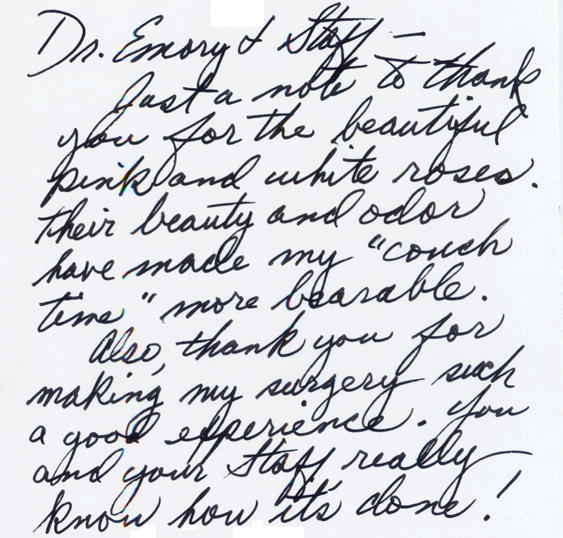 Dr. Emory & Staff –
Just a note to thank
you for the beautiful
pink and white roses.
Their beauty and odor
have made my "couch
time" more bearable.
Also, thank you for
making my surgery such
a good experience. You
and your staff really
know how it's done!